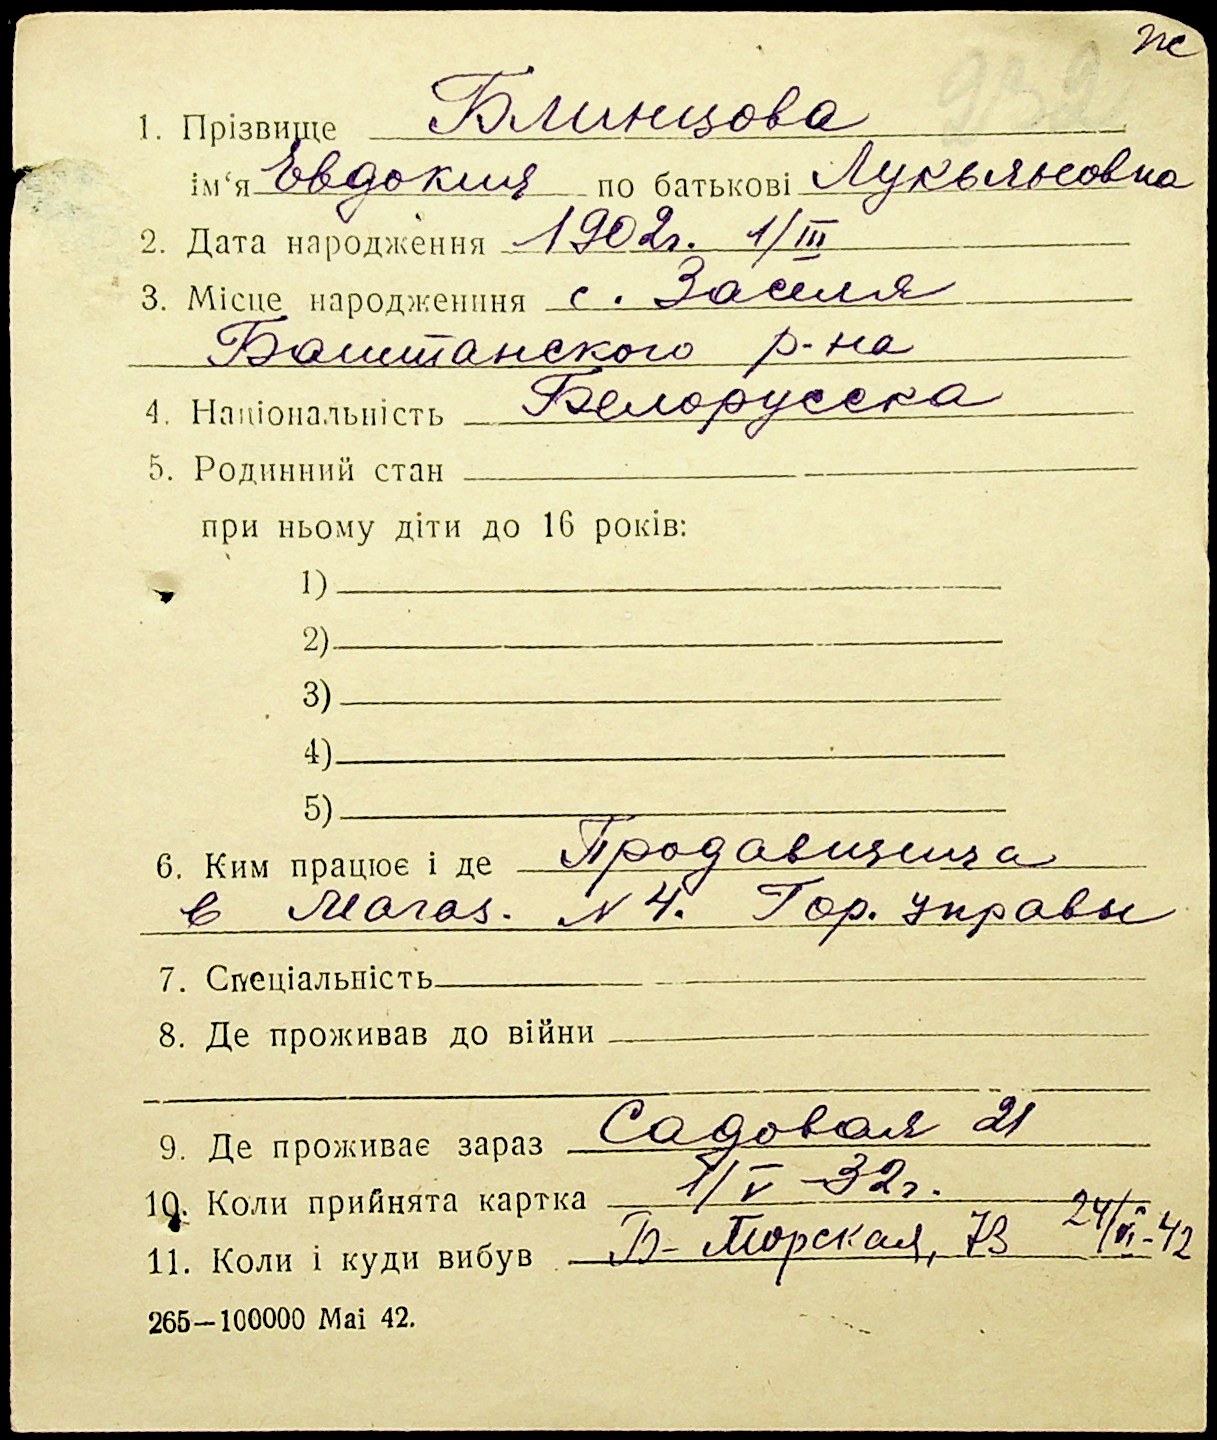 ж
232
1. Прізвище Блинцова
ім‘я Евдокия по батькові Лукьяновна
2. Дата народження 1902г. 1/III
3. Місце народженння с. Заселя
Баштанского р-на
4. Національність Белорусска
5. Родинний стан
при ньому діти до 16 років:
1)
2)
3)
4)
5)
6. Ким працює і де Продавщица
в Магаз. N 4. Гор. управы
7. Спеціальність
8. Де проживав до війни
9. Де проживає зараз Садовая 21
10. Коли прийнята картка 1/V -32г.
11. Коли і куди вибув Б- Морская, 73 24/VI-42
265—100000 Mai 42.